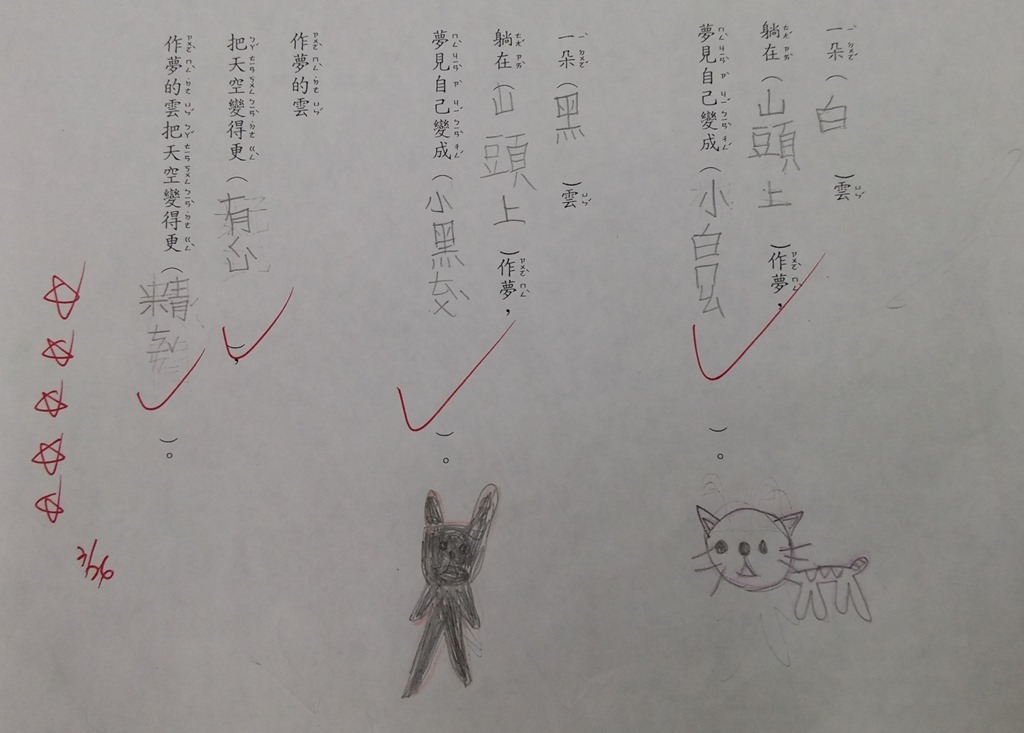 一朵（白）雲
躺在（山頭上）作夢，
夢見自己變成（小白ㄇㄠ）。
一朵（黑）雲
躺在（山頭上）作夢，
夢見自己變成（小黑ㄊㄨˋ）。
作夢的雲
把天空變得更（有），
作夢的雲把天空變得更（精）。